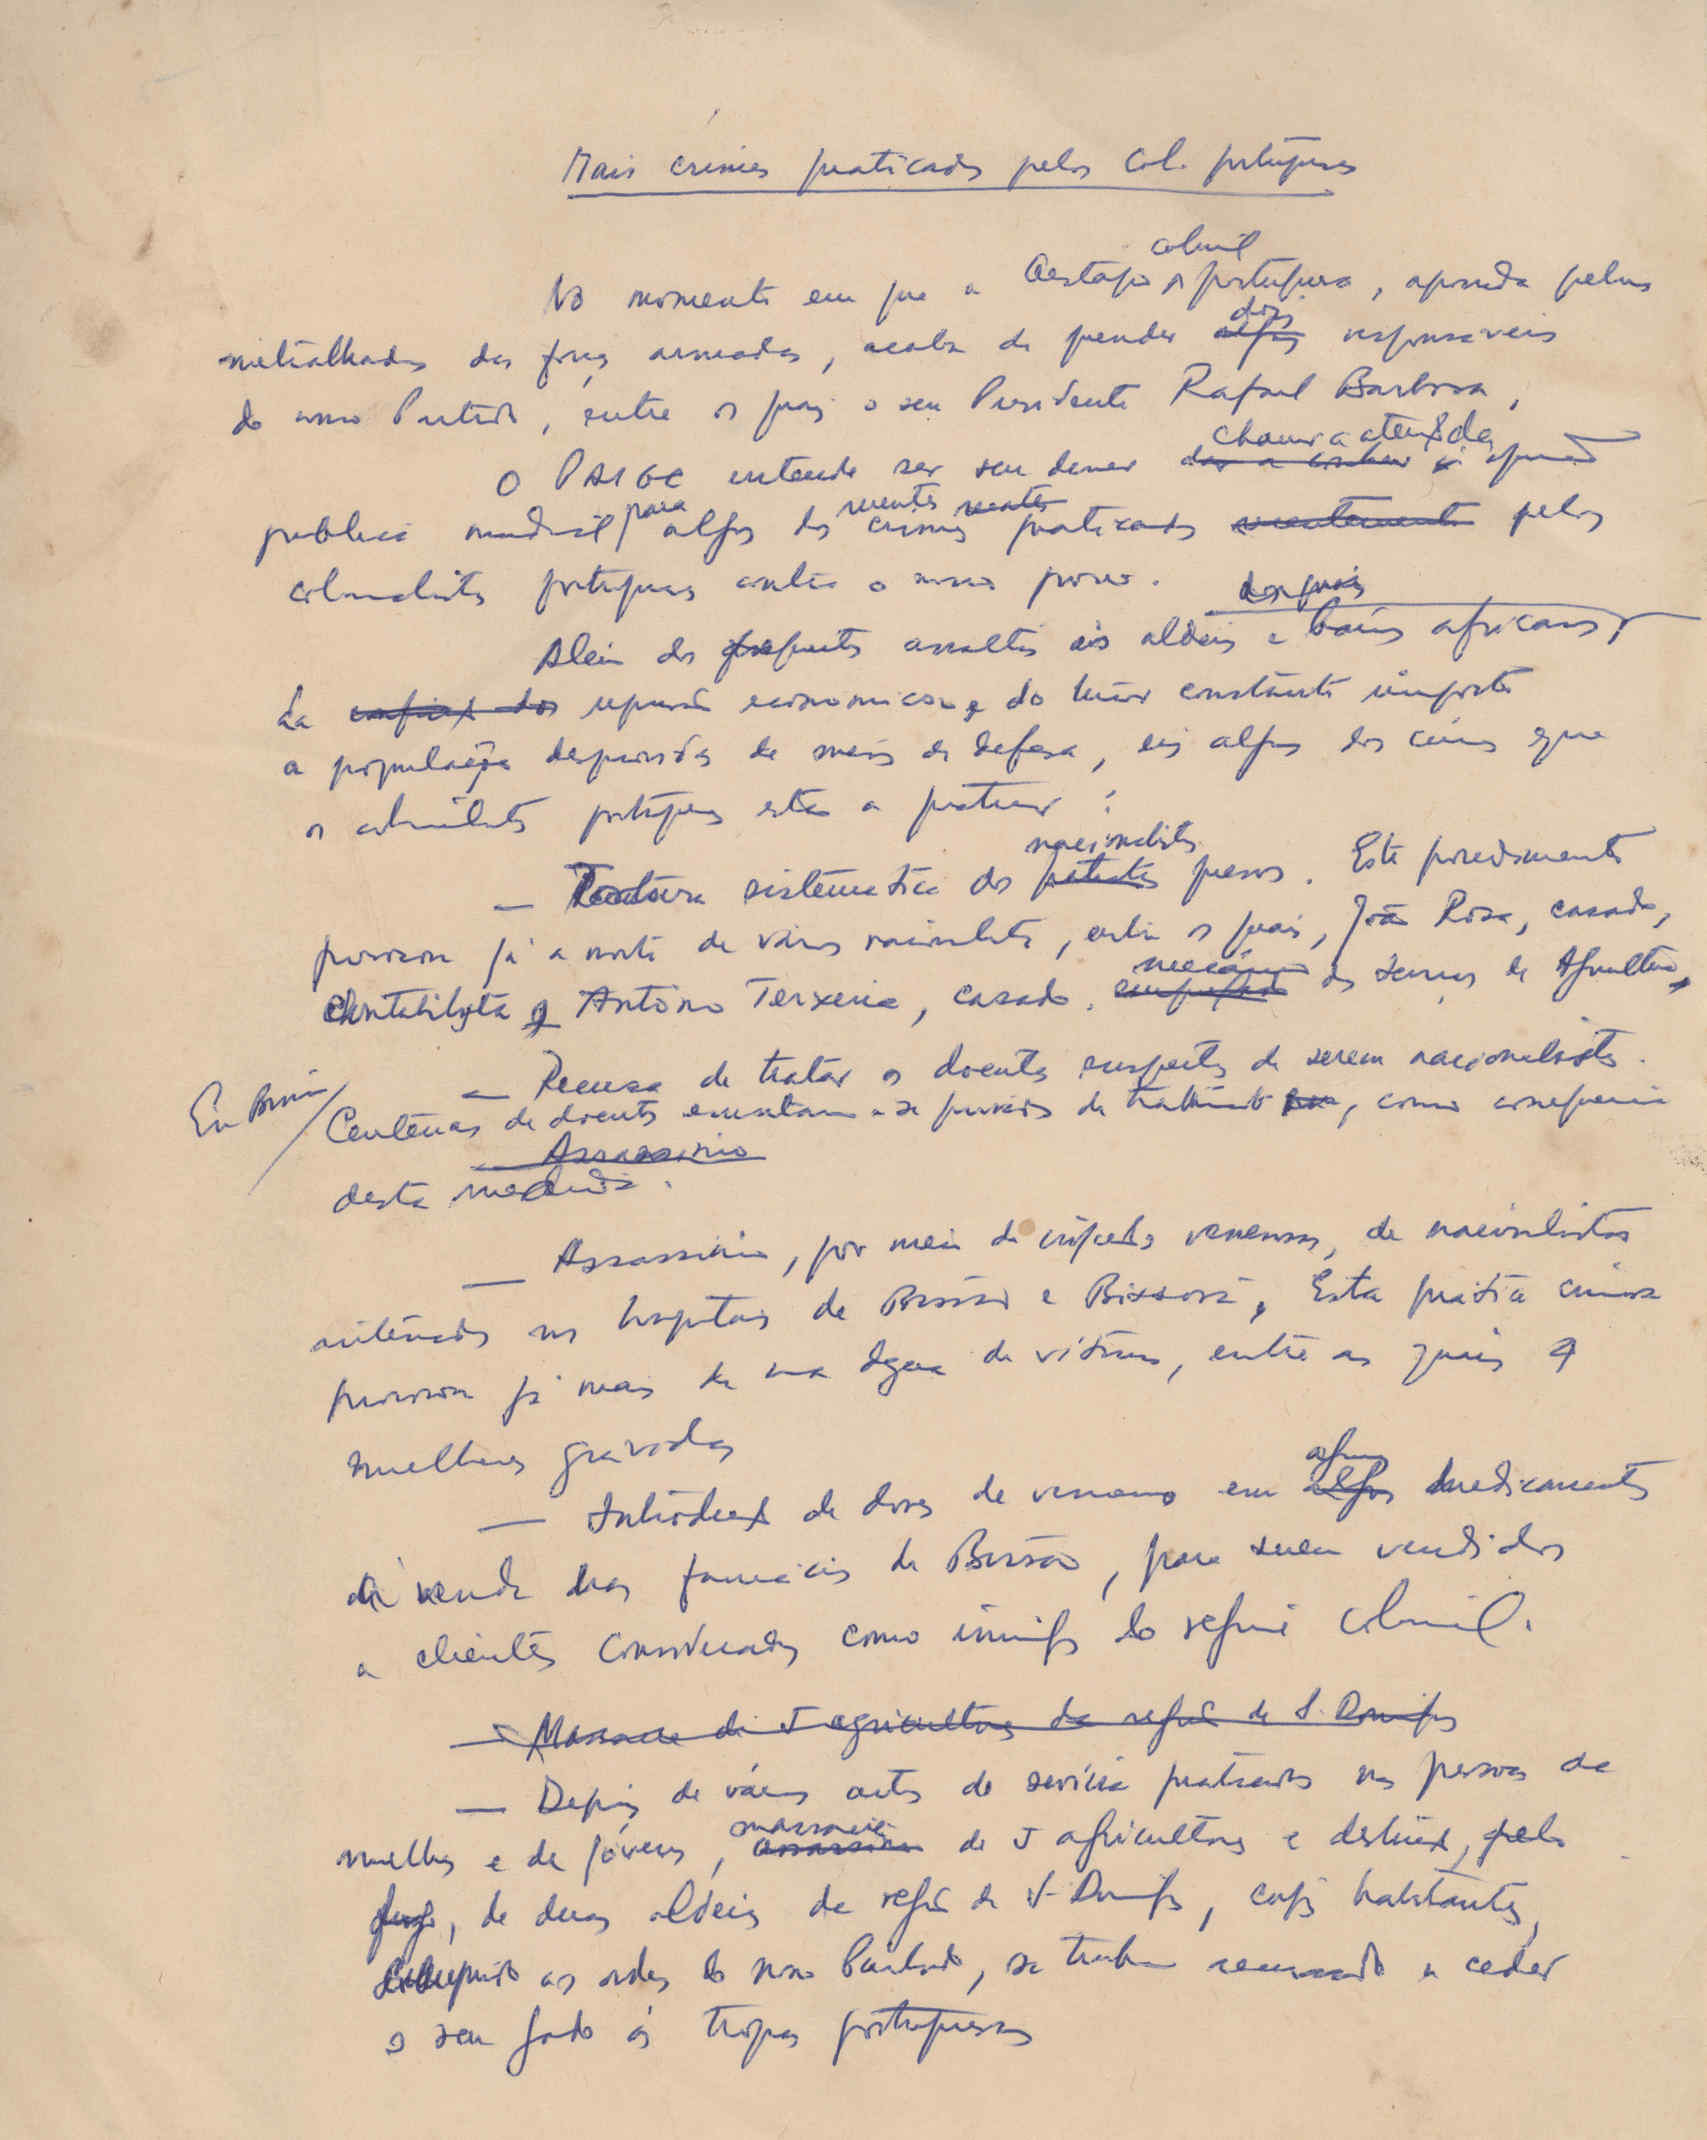 Mais crimes praticados pelos Col. portugueses
No momento em que a Gestapo colonial portuguesa, apoiada pelas
metralhadoras das forças armadas, acaba de prender ~~alguns~~ dois responsáveis
do nosso Partido, entre os quais o seu Presidente Rafael Barbosa,
O PAIGC entende ser seu dever ~~dar a conhecer à~~ chamar a atenção da opinião
publica mundial para alguns dos recentes crimes ~~recentes~~ praticados ~~recentemente~~ pelos
colonialistas portugueses contra o nosso povo.
Alem dos frequentes assaltos às aldeias e bairros africanos,
da repressão economica e do terror constante imposto
a população desprovida de meios de defesa, eis alguns dos crimes que
os colonialistas portugueses estão a praticar:
— Tortura sistemática dos ~~patriotas~~ nacionalistas presos. Este procedimento
provocou já a morte de vários nacionalistas, entre os quais, João Rosa, casado,
Contabilista e António Teixeira, casado, ~~empregado~~ mecânico dos Serviços de Agricultura,
— Recusa de tratar os doentes suspeitos de serem nacionalistas.
Em Bissau / Centenas de doentes encontram-se privados de tratamento, como consequencia
~~— Assassinio~~
desta medida.
— Assassinio, por meio de injecções venenosas, de nacionalistas
internados nos hospitais de Bissau e Bissorã. Esta prática criminosa
provocou já mais de uma dezena de vitimas, entre as quais 4
mulheres gravidas
— Introdução de doses de veneno em ~~alguns~~ alguns medicamentos
à venda nas farmácias de Bissau, para serem vendidos
a clientes considerados como inimigos do regime colonial.
~~— Massacre de 5 agricultores da região de S. Domingos~~
— Depois de vários actos de sevícia praticados nas pessoas de
mulheres e de jóvens, ~~assassinio~~ massacre de 5 agricultores e destruição, pelo
fogo, de duas aldeias da região de S. Domingos, cujos habitantes,
as ordens do nosso Partido, se tinham recusado a ceder
o seu gado às tropas portuguesas